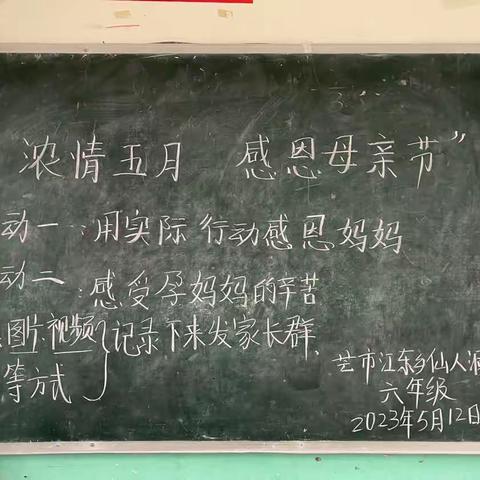 浓情五月 感恩母亲节"
动一:用实际行动感恩妈妈
动二:感受孕妈妈的辛苦
图片、视频}记录下来发家长群、
等方式
芒市江东乡仙人洞
六年级
2023年5月12日